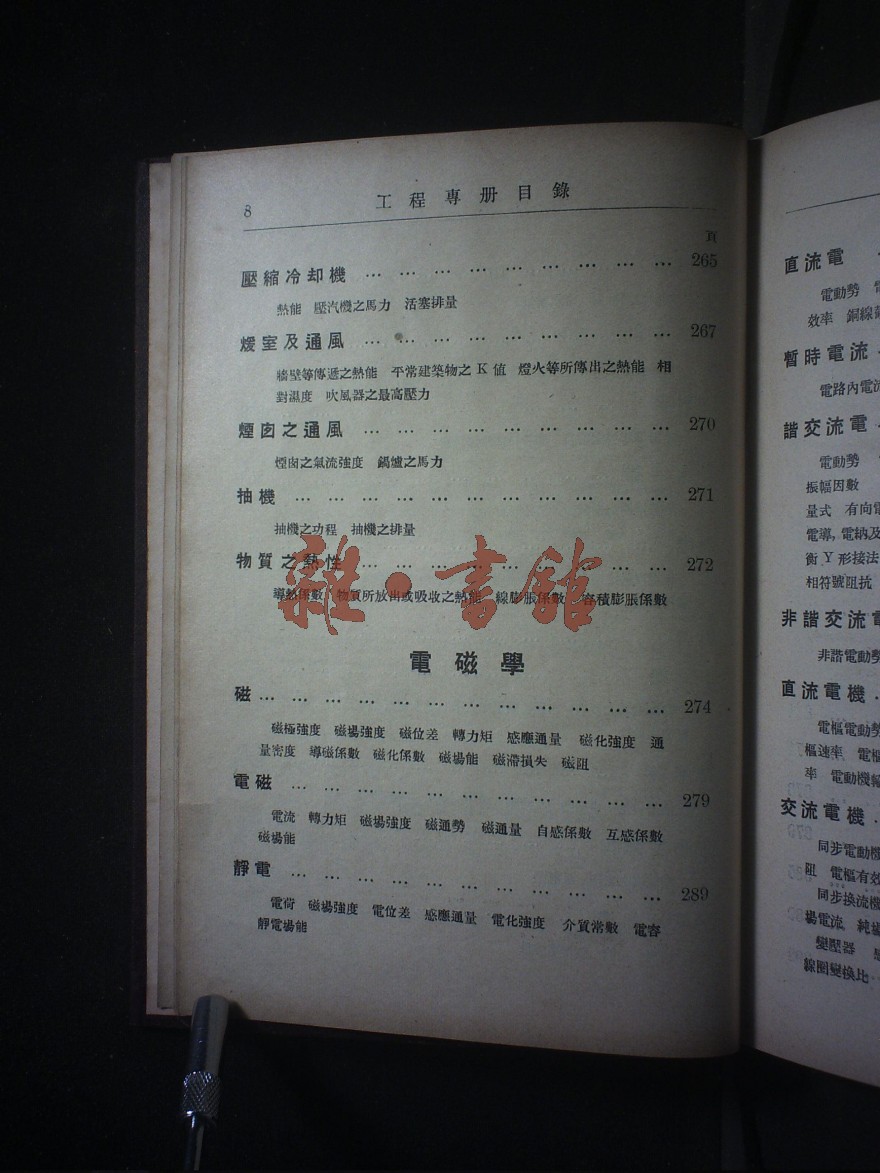 8 工程專册目錄
頁
壓縮冷却機 … … … … … … … … … 265
熱能 壓汽機之馬力 活塞排量
煖室及通風 … … … … … … … … … 267
牆壁等傳遞之熱能 平常建築物之 K 值 燈火等所傳出之熱能 相
對濕度 吹風器之最高壓力
煙囱之通風 … … … … … … … … … 270
煙囱之氣流強度 鍋爐之馬力
抽機 … … … … … … … … … … … 271
抽機之功程 抽機之排量
物質之熱性 … … … … … … … … … 272
導熱係數 物質所放出或吸收之熱能 線膨脹係數 容積膨脹係數
雜·書館
電磁學
磁 … … … … … … … … … … … … 274
磁極強度 磁場強度 磁位差 轉力矩 感應通量 磁化強度 通
量密度 導磁係數 磁化係數 磁場能 磁滯損失 磁阻
電磁 … … … … … … … … … … … 279
電流 轉力矩 磁場強度 磁通勢 磁通量 自感係數 互感係數
磁場能
靜電 … … … … … … … … … … … 289
電荷 磁場強度 電位差 感應通量 電化強度 介質常數 電容
靜電場能
直流電
電動勢
效率 銅線
暫時電流
電路內電流
諧交流電
電動勢
振幅因數
量式 有向電
電導,電納及
衡 Y 形接法
相符號阻抗
非諧交流電
非諧電動勢
直流電機
電樞電動勢
樞速率 電樞
率 電動機
交流電機
同步電動機
阻 電樞有效
同步換流機
場電流 純
變壓器
線圈變換比